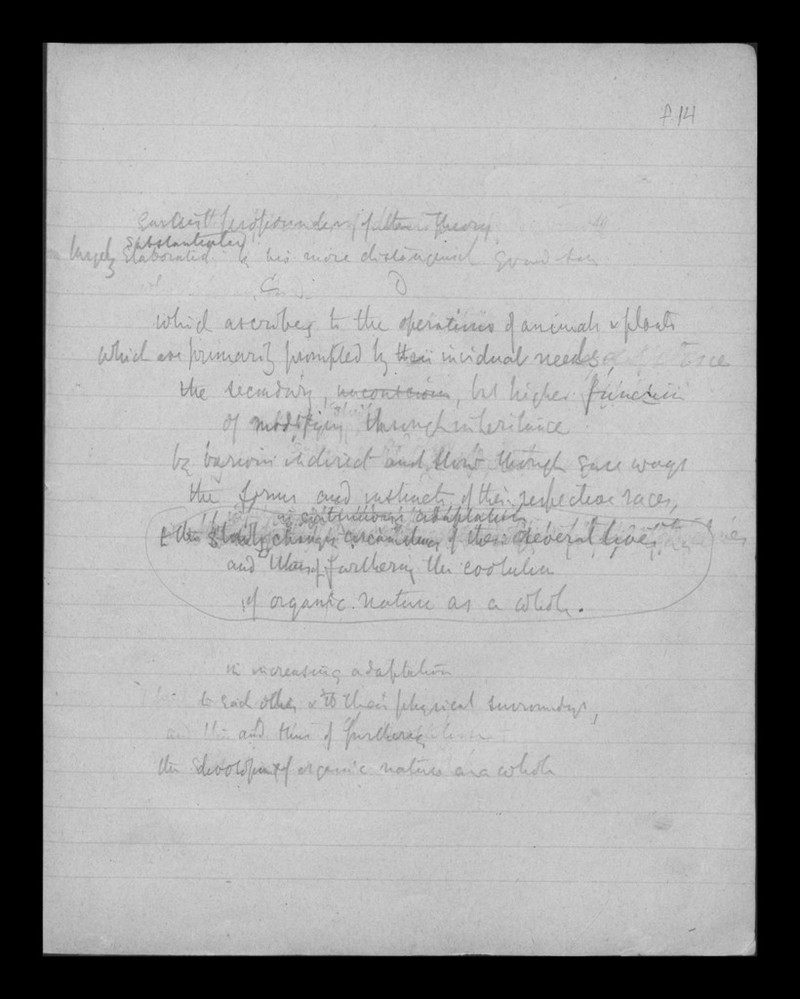 f. 14
Earliest propounders of that Theory
substantially
largely Elaborated by his more distinguished Grandson
D
which ascribes to the operations of animals & plants
which are primarily prompted by their individual needs
the secondary, unconscious, but higher function
of modifying through inheritance
by various indirect and slow though sure ways
the forms and instincts of their respective races,
in continuous adaptation
changing circumstances of their several lives
and thus furthering the evolution
of organic nature as a whole.
in increasing adaptation
to each other & to their physical surroundings,
and thus of furthering
the development of organic nature as a whole